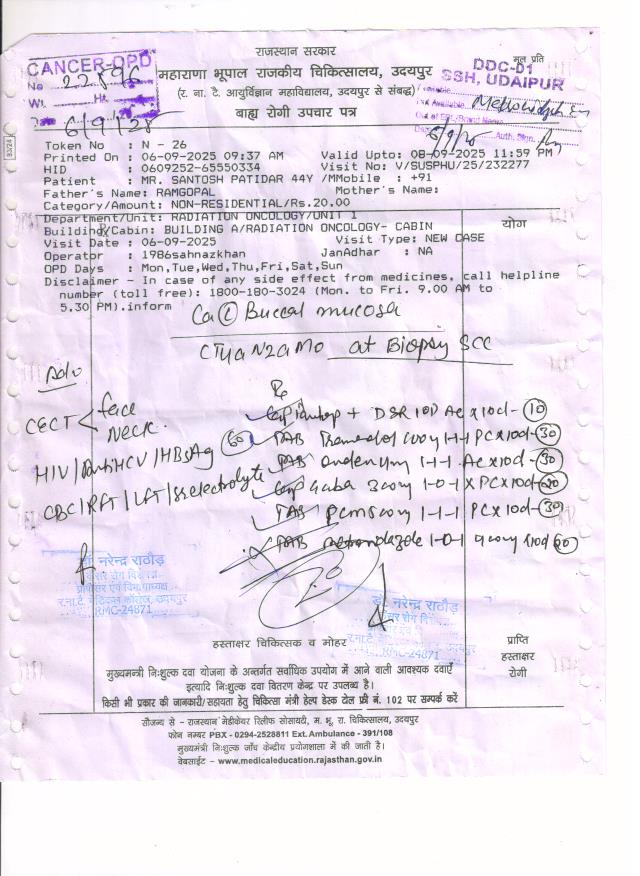 राजस्थान सरकार
मूल प्रति
CANCER-OPD
No 22896
Wt. Ht.
Date 6/9/25
महाराणा भूपाल राजकीय चिकित्सालय, उदयपुर
(र. ना. टै. आयुर्विज्ञान महाविद्यालय, उदयपुर से संबद्ध)
बाह्य रोगी उपचार पत्र
DDC-01
SSH, UDAIPUR
Auth. Sign.
Token No : N - 26
Printed On : 06-09-2025 09:37 AM Valid Upto: 08-09-2025 11:59 PM
HID : 0609252-65550334 Visit No: V/SUSPHU/25/232277
Patient : MR. SANTOSH PATIDAR 44Y /MMobile : +91
Father's Name: RAMGOPAL Mother's Name:
Category/Amount: NON-RESIDENTIAL/Rs.20.00
Department/Unit: RADIATION ONCOLOGY/UNIT 1
Building/Cabin: BUILDING A/RADIATION ONCOLOGY- CABIN
योग
Visit Date : 06-09-2025 Visit Type: NEW CASE
Operator : 1986sahnazkhan JanAdhar : NA
OPD Days : Mon,Tue,Wed,Thu,Fri,Sat,Sun
Disclaimer - In case of any side effect from medicines, call helpline
number (toll free): 1800-180-3024 (Mon. to Fri. 9.00 AM to
5.30 PM).inform
Ca (L) Buccal mucosa
CT4aN2aM0 at Biopsy SCC
Adv
CECT face
Neck
HIV/AntiHCV/HBsAg
CBC/RFT/LFT/Sr electrolyte
Rx
+ DSR 10D AC x 10d - 10
TAB Tramadol 1-1-1 PC x 10d - 30
TAB 1-1-1 AC x 10d - 30
Cap Gaba 300mg 1-0-1 x PC x 10d - 20
TAB PCM 500mg 1-1-1 PC x 10d - 30
TAB Metronidazole 1-0-1 10d
डॉ. नरेन्द्र राठौड़
RMC-24871
डॉ. नरेन्द्र राठौड़
RMC-24871
हस्ताक्षर चिकित्सक व मोहर
प्राप्ति
हस्ताक्षर
रोगी
मुख्यमन्त्री निःशुल्क दवा योजना के अन्तर्गत सर्वाधिक उपयोग में आने वाली आवश्यक दवाएँ
इत्यादि निःशुल्क दवा वितरण केन्द्र पर उपलब्ध है।
किसी भी प्रकार की जानकारी/सहायता हेतु चिकित्सा मंत्री हेल्प डेस्क टोल फ्री नं. 102 पर सम्पर्क करें
सौजन्य से - राजस्थान मेडीकेयर रिलीफ सोसायटी, म. भू. रा. चिकित्सालय, उदयपुर
फोन नम्बर PBX - 0294-2528811 Ext. Ambulance - 391/108
मुख्यमंत्री निःशुल्क जाँच केन्द्रीय प्रयोगशाला में की जाती है।
वेबसाईट - www.medicaleducation.rajasthan.gov.in